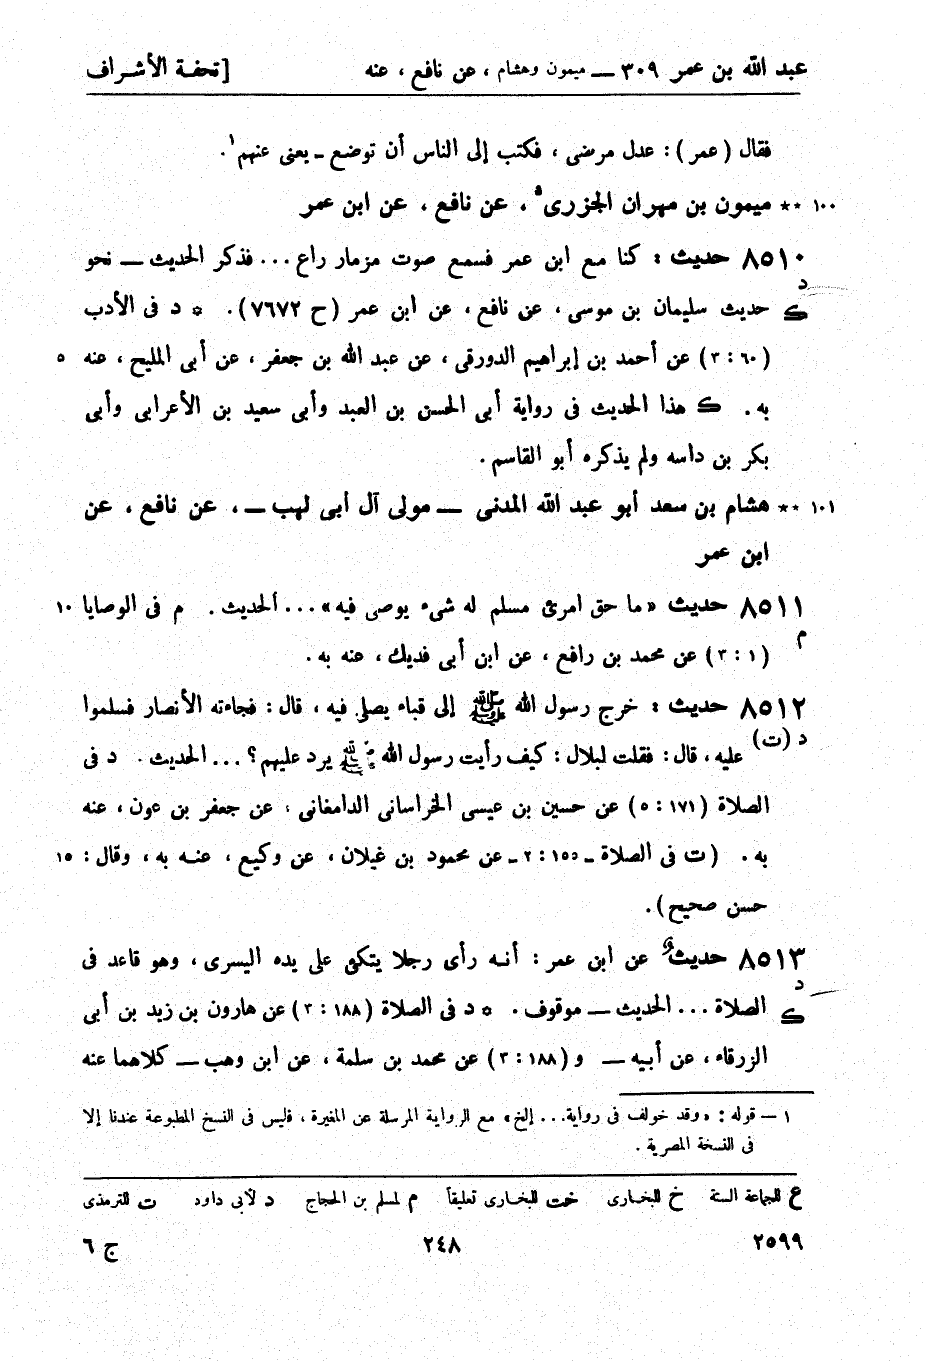 عبد الله بن عمر ٣٠٩ — ميمون وهشام ، عن نافع ، عنه [تحفة الأشراف
فقال (عمر) : عدل مرضى ، فكتب إلى الناس أن توضع ـ يعنى عنهم١.
١٠٠ ** ميمون بن مهران الجزرى ، عن نافع ، عن ابن عمر
٨٥١٠ حديث : كنا مع ابن عمر فسمع صوت مزمار راع ... فذكر الحديث — نحو
د
ك حديث سليمان بن موسى ، عن نافع ، عن ابن عمر (ح ٧٦٧٢). * د فى الأدب
(٦٠ : ٣) عن أحمد بن إبراهيم الدورقى ، عن عبد الله بن جعفر ، عن أبى المليح ، عنه ٥
به . ك هذا الحديث فى رواية أبى الحسن بن العبد وأبى سعيد بن الأعرابى وأبى
بكر بن داسه ولم يذكره أبو القاسم .
١٠١ ** هشام بن سعد أبو عبد الله المدنى — مولى آل أبى لهب — ، عن نافع ، عن
ابن عمر
٨٥١١ حديث «ما حق امرئ مسلم له شىء يوصى فيه» ... الحديث . م فى الوصايا ١٠
م (١ : ٣) عن محمد بن رافع ، عن ابن أبى فديك ، عنه به .
٨٥١٢ حديث : خرج رسول الله ﷺ إلى قباء يصلى فيه ، قال : فجاءته الأنصار فسلموا
د (ت) عليه ، قال : فقلت لبلال : كيف رأيت رسول الله ﷺ يرد عليهم ؟ ... الحديث . د فى
الصلاة (١٧١ : ٥) عن حسين بن عيسى الخراسانى الدامغانى ، عن جعفر بن عون ، عنه
به . (ت فى الصلاة ـ ١٥٥ : ٢ ـ عن محمود بن غيلان ، عن وكيع ، عنه به ، وقال : ١٥
حسن صحيح).
٨٥١٣ حديث عن ابن عمر : أنه رأى رجلا يتكئ على يده اليسرى ، وهو قاعد فى
د
ك الصلاة ... الحديث — موقوف . * د فى الصلاة (١٨٨ : ٣) عن هارون بن زيد بن أبى
الزرقاء ، عن أبيه — و (١٨٨ : ٣) عن محمد بن سلمة ، عن ابن وهب — كلاهما عنه
١ — قوله : «وقد خولف فى رواية ... إلخ» مع الرواية المرسلة عن المغيرة ، فليس فى النسخ المطبوعة عندنا إلا
فى النسخة المصرية .
ع للجماعة الستة خ للبخارى خت للبخارى تعليقاً م لمسلم بن الحجاج د لأبى داود ت للترمذى
٢٥٩٩ ٢٤٨ ج ٦